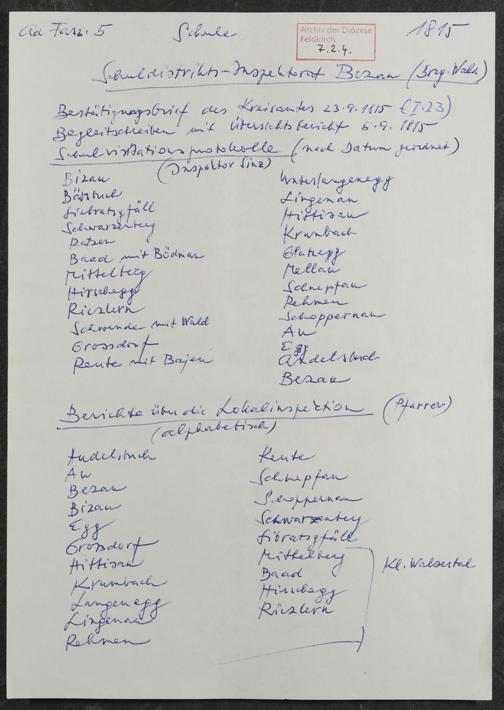 ad Fasz. 5 Schule 1815
Archiv der Diözese
Feldkirch
7.2.4.
Schuldistrikts-Inspektorat Bezau (Breg. Wald)
Bestätigungsbrief des Kreisamtes 23.9.1815 (I.23)
Begleitschreiben mit Übersichtsbericht 6.9.1815
Schulvisitationsprotokolle (nach Datum geordnet)
(Inspektor Sinz)
Bizau
Sibratsgfäll
Schwarzenberg
Baad mit Bödmen
Mittelberg
Hirschegg
Riezlern
Schwende mit Wald
Grossdorf
Reute mit Bajen
Unterlangenegg
Lingenau
Hittisau
Krumbach
Mellau
Schnepfau
Rehmen
Schoppernau
Au
Egg
Andelsbuch
Bezau
Berichte über die Lokalinspektion (Pfarrer)
(alphabetisch)
Andelsbuch
Au
Bezau
Bizau
Egg
Grossdorf
Hittisau
Krumbach
Langenegg
Lingenau
Rehmen
Reute
Schnepfau
Schoppernau
Schwarzenberg
Sibratsgfäll
Mittelberg
Baad
Hirschegg
Riezlern
Kl. Walsertal